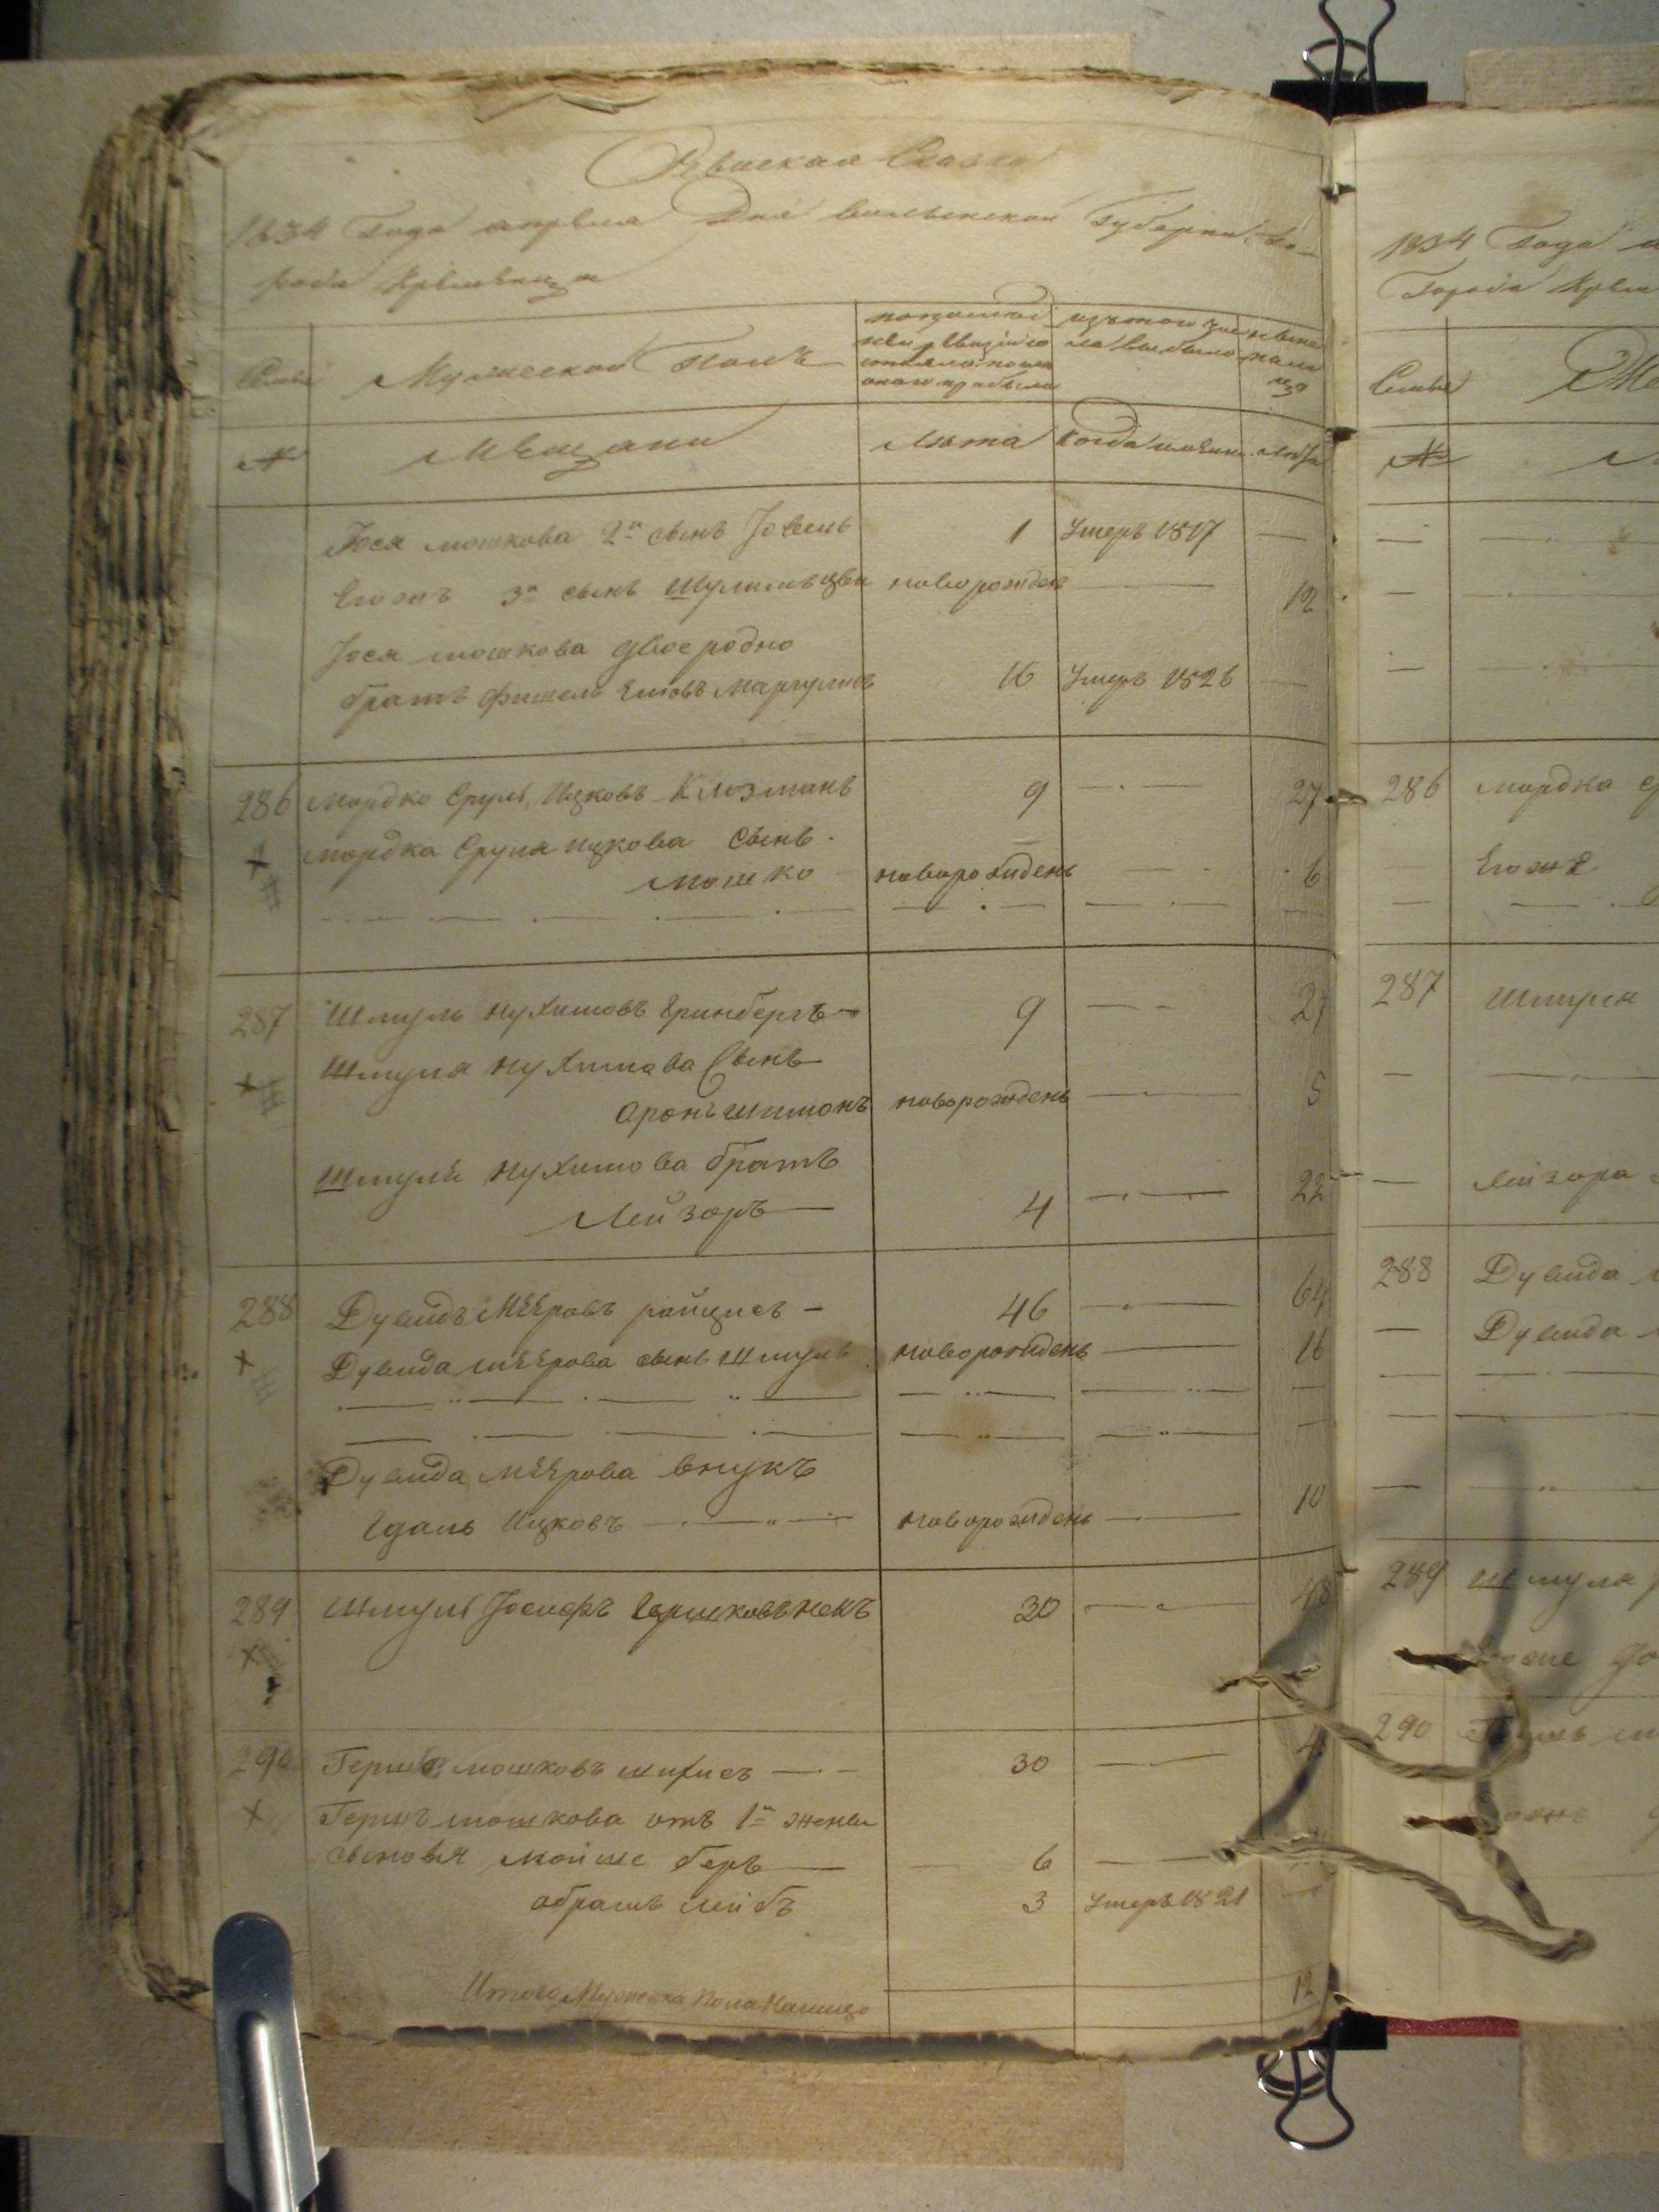 Ревиская Сказка
1834 Года апреля Дня Волынской Губернии Го-
рода Кременца
Семьи
Мужеской Полъ
по последней ревизии состояло и после оного прибыло
изъ того числа выбыло
ныне на лицо
№
Мещани
Лета
Когда именно
Лета
Іося мошкова 2й сынъ Іовель 1 Умеръ 1817 —
Егожъ 3й сынъ Шулимъ цви новорожденъ — 12
Іося мошкова двоеродно
братъ Фишель Маргулисъ 16 Умеръ 1826 —
286 Мордко Сруль Ицковъ Клозманъ 9 — 27
Мордка Сруля ицкова Сынъ
Мошко новорожденъ — 6
287 Шмуль Нухимовъ Гринбергъ 9 — 27
Шмуля Нухимова Сынъ
Аронъ Шимонъ новорожденъ — 5
Шмуля Нухимова братъ
Лейзоръ 4 — 22
288 Дувидъ Меѣровъ райцисъ 46 — 64
Дувида меѣрова сынъ Шмуль новорожденъ — 16
Дувида Меѣрова внукъ
Гдаль Ицковъ новорожденъ — 10
289 Шмуль Іосифъ Гершковъ 30 — 48
290 Гершъ мошковъ 30 —
Гершъ мошкова отъ 1й жены
сыновья Мойше беръ 6 —
абрамъ лейбъ 3 Умеръ 1821 —
Итого Мужеска Пола Налицо 12
1834 Года
Города Креме
Семьи
№
286 мордка
Егоже
287 Шмуля
Лейзора
288 Дувида
Дувида
289 Шмуля
290